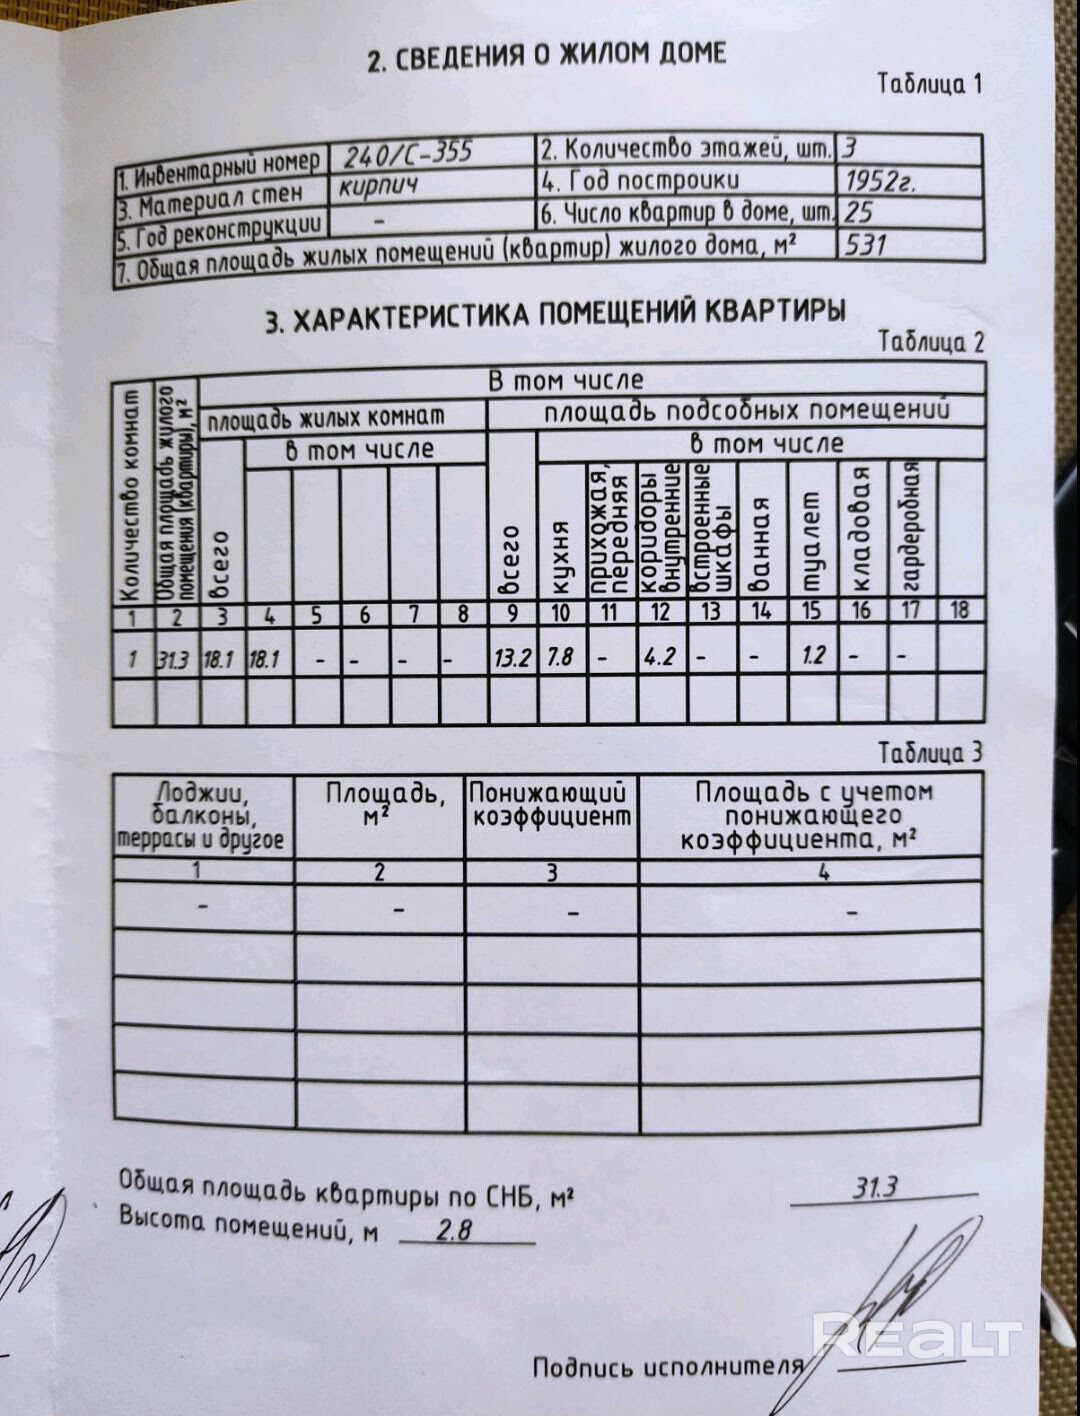 2. СВЕДЕНИЯ О ЖИЛОМ ДОМЕ
Таблица 1
1. Инвентарный номер 240/С-355 2. Количество этажей, шт. 3
3. Материал стен кирпич 4. Год построики 1952г.
5. Год реконструкции - 6. Число квартир в доме, шт. 25
7. Общая площадь жилых помещений (квартир) жилого дома, м² 531
3. ХАРАКТЕРИСТИКА ПОМЕЩЕНИЙ КВАРТИРЫ
Таблица 2
Количество комнат
Общая площадь жилого
помещения (квартиры), м²
В том числе
площадь жилых комнат
площадь подсобных помещений
в том числе
в том числе
всего
всего
кухня
прихожая,
передняя
коридоры
внутренние
встроенные
шкафы
ванная
туалет
кладовая
гардеробная
1 2 3 4 5 6 7 8 9 10 11 12 13 14 15 16 17 18
1 31.3 18.1 18.1 - - - - 13.2 7.8 - 4.2 - - 1.2 - -
Таблица 3
Лоджии,
балконы,
террасы и другое
Площадь,
м²
Понижающий
коэффициент
Площадь с учетом
понижающего
коэффициента, м²
1 2 3 4
- - - -
Общая площадь квартиры по СНБ, м² 31.3
Высота помещений, м 2.8
Подпись исполнителя
REALT